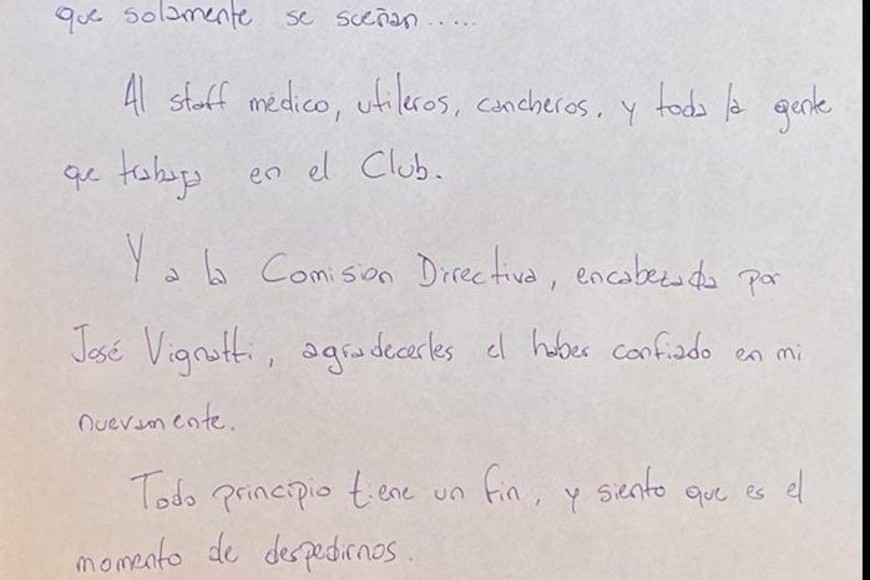 que solamente se sueñan.....
Al staff médico, utileros, cancheros, y toda la gente
que trabaja en el Club.
Y a la Comision Directiva, encabezada por
José Vignatti, agradecerles el haber confiado en mi
nuevamente.
Todo principio tiene un fin, y siento que es el
momento de despedirnos.